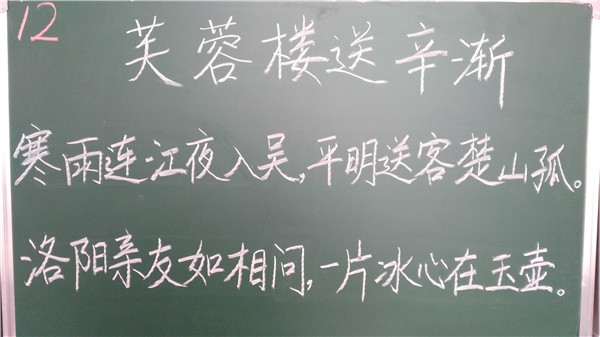 12
芙蓉楼送辛渐
寒雨连江夜入吴,平明送客楚山孤。
洛阳亲友如相问,一片冰心在玉壶。